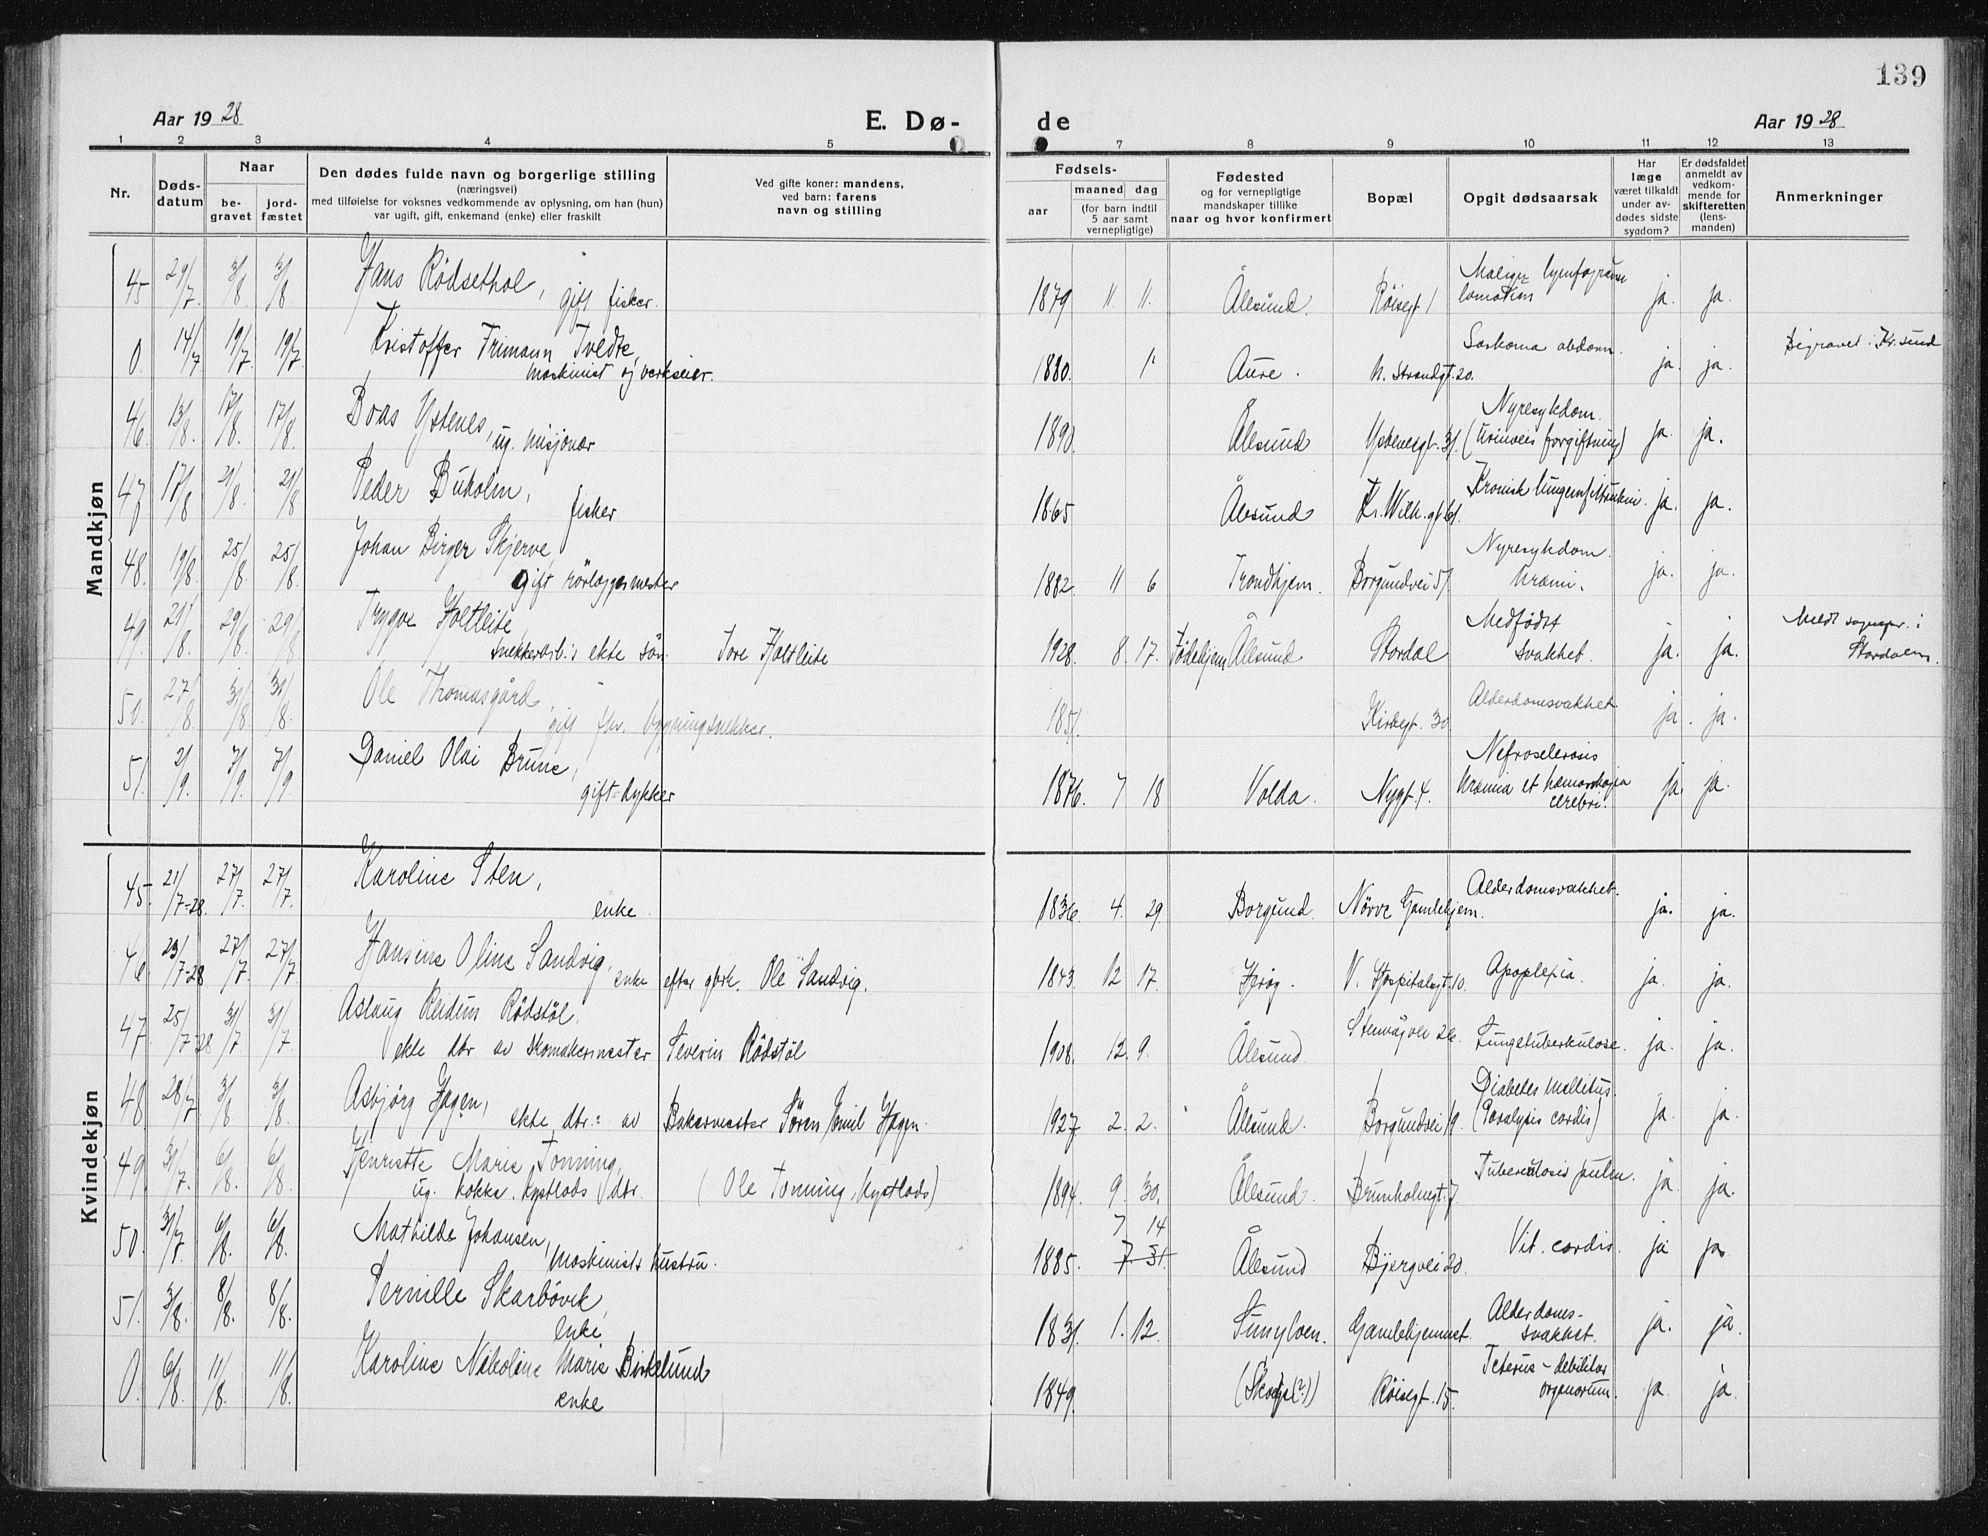 139
Aar 1928
E. Dø-
de
Aar 1928
1 2 3 4 5 7 8 9 10 11 12 13
Nr.
Døds-
datum
Naar
be-
gravet
jord-
fæstet
Den dødes fulde navn og borgerlige stilling
(næringsvei)
med tilføielse for voksnes vedkommende av oplysning, om han (hun)
var ugift, gift, enkemand (enke) eller fraskilt
Ved gifte koner: mandens,
ved barn: farens
navn og stilling
Fødsels-
aar
maaned dag
(for barn indtil
5 aar samt
vernepligtige)
Fødested
og for vernepligtige
mandskaper tillike
naar og hvor konfirmert
Bopæl
Opgit dødsaarsak
Har
læge
været tilkaldt
under av-
dødes sidste
sygdom?
Er dødsfaldet
anmeldt av
vedkom-
mende for
skifteretten
(lens-
manden)
Anmerkninger
Mandkjøn
45 29/7 3/8 3/8 Hans Rödsethol, gift fisker. 1879 11. 11. Ålesund. Röisegt 1 ja. ja.
0. 14/7 19/7 19/7 Kristoffer Frimann Tvedte,
maskinist og verkseier. 1880. Aure. N. Strandgt. 20. Sarkoma abdom. ja. ja. Begravet i Kr.sund
46. 13/8. 17/8. 17/8. Boas Ystenes, ug. misjonær 1890. Ålesund Ystenesgt. 31. Nyresykdom.
(Urinveis forgiftning) ja. ja.
47 17/8 21/8. 21/8 Peder Buholm, fisker 1865 Ålesund Kr. Wilh. gt 61. Kronisk ja. ja.
48. 19/8. 25/8 25/8. Johan Birger Skjerve,
gift rörlæggermester 1882 11 6 Trondhjem. Borgundvei 51. Nyresykdom.
Uræmi. ja. ja.
49. 21/8. 29/8 29/8 Trygve Holtleite,
snekkerarb.s ekte sön. Tore Holtleite 1928. 8. 17. Födehjem Ålesund Stordal Medfödt
svakhet. ja. ja. Meldt sognepr. i
Stordalen.
50. 27/8 31/8. 31/8. Ole Thomasgård,
gift fhv. bygningsnekker. 1851. Kirkegt. 30 Alderdomsvakhet ja. ja.
51. 2/9. 7/9. 7/9 Daniel Olai Brune,
gift dykker 1876. 7 18 Volda. Nygt. 4. Nefroselerosis
Uræmia et hæmorrhagia
cerebri. ja. ja.
Kvindekjøn
45. 21/7-28. 27/7. 27/7. Karoline Sten,
enke 1836. 4. 29. Borgund Nörve Gamlehjem. Alderdomsvakhet. ja. ja.
46 23/7-28 27/7 27/7 Hansine Oline Sandvig, enke efter gbrk. Ole Sandvig. 1843. 12 17. Heröy. V. Hospitalsgt. 10. Apoplexia. ja. ja.
47. 25/7-28 31/7 31/7. Aslaug Reidun Rödstöl.
ekte dtr av skomakermester Severin Rödstöl 1908. 12. 9. Ålesund. Stenvågvei 26. Lungetuberkulose. ja. ja.
48. 28/7 3/8 3/8. Asbjörg Hagen,
ekte dtr.: av Bakermester Sören Emil Hagen. 1927 2. 2. Ålesund. Borgundvei 19. Diabetes mellitus.
(Paralysis cordis) ja. ja.
49. 31/7. 6/8. 6/8. Henriette Marie Tonning,
ug. kokke. kystlods dtr. (Ole Tonning, kystlods) 1894. 9. 30. Ålesund. Brunholmgt. 7. Tuberculosis pulm. ja. ja.
50. 31/7 6/8. 6/8. Mathilde Johansen,
maskinists hustru. 1885. 7 14
7. 31. Ålesund Bjergvei 20. Vit. cordis. ja ja.
51. 3/8. 8/8. 8/8. Pernille Skarbövik,
enke 1831. 1. 12. Sunylven. Gamlehjemmet. Alderdoms-
svakhet. ja. ja.
0. 6/8. 11/8. 11/8. Karoline Nikoline Marie Birkelund
enke 1849. (Skodje(?)) Röisegt. 15. debilitas
organorum. ja. ja.